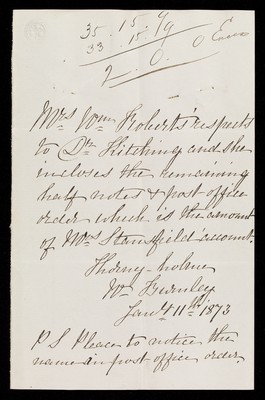 35 . 15 . 9
33 . 15 . 9
2 . 0 . 0
Mrs Wm Roberts respects
to Dr Kitching and she
incloses the remaining
half notes & post office
order which is the amount
of Mrs Stansfield account.
Thorny-holme
Nr Burnley
Jany 11th 1873
P S Please to notice the
name in post office order.